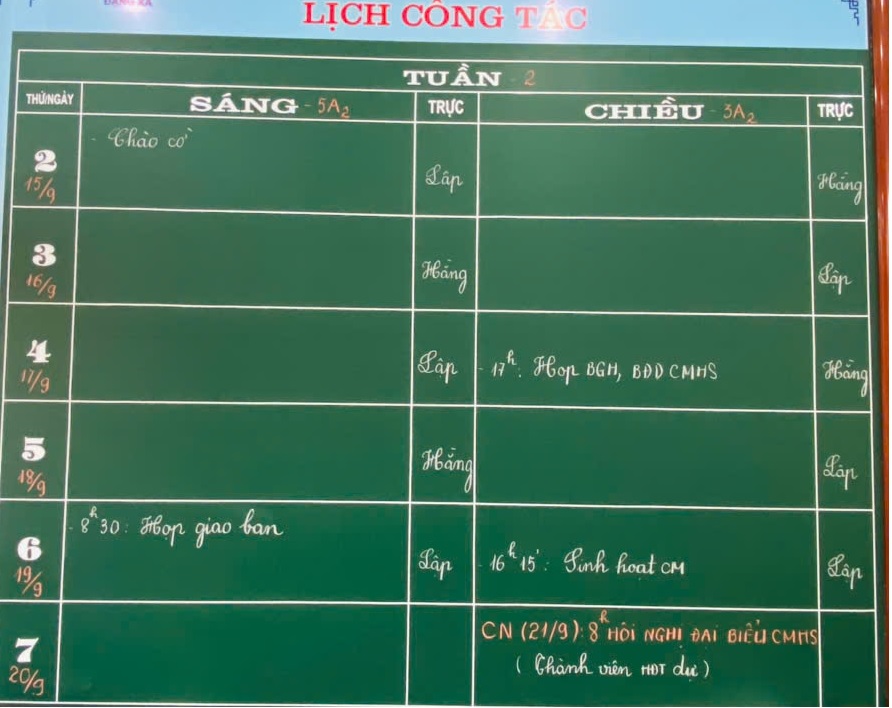 LỊCH CÔNG TÁC
TUẦN - 2
THỨ/NGÀY SÁNG - 5A2 TRỰC CHIỀU - 3A2 TRỰC
2 - Chào cờ
15/9 Lập Hằng
3
16/9 Hằng Lập
4
17/9 Lập - 17h: Họp BGH, BĐD CMHS Hằng
5
18/9 Hằng Lập
- 8h30: Họp giao ban
6
19/9 Lập - 16h15': Sinh hoạt CM Lập
7 CN (21/9): 8h HỘI NGHỊ ĐẠI BIỂU CMHS
20/9 (Thành viên HĐT dự)